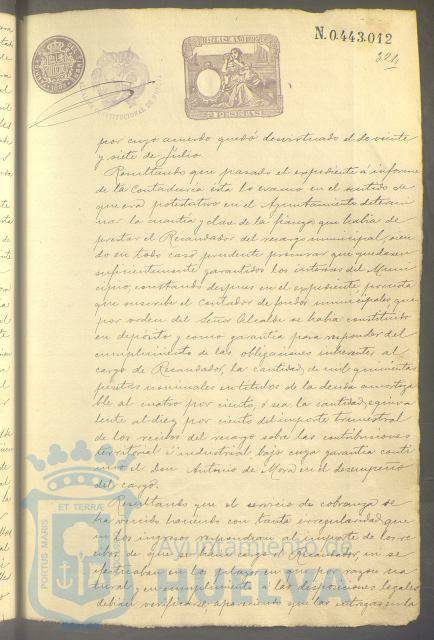 N.0.443.012
324
12ª CLASE AÑO 1895
2 PESETAS
por cuyo acuerdo quedó desvirtuado el de veinte
y siete de Julio.
Resultando que pasado el expediente á informe
de la Contaduría esta lo evacuó en el sentido de
que era potestativo en el Ayuntamiento determi-
nar la cuantía y clase de la fianza que había de
prestar el Recaudador del recargo municipal, sien-
do en todo caso prudente procurar que quedasen
suficientemente garantidos los intereses del Muni-
cipio; constando despues en el expediente por nota
que suscribe el Contador de fondos municipales, que
por orden del Señor Alcalde se había constituido
en depósito y como garantía para responder del
cumplimiento de las obligaciones inherentes al
cargo de Recaudador, la cantidad de mil quinientas
pesetas nominales en titulos de la deuda amortiza
ble al cuatro por ciento, ó sea la cantidad equiva
lente al diez por ciento del importe trimestral
de los recibos del recargo sobre las contribuciones
territorial é industrial, bajo cuya garantía conti
nuó el don Antonio de Mora en el desempeño
del cargo.
Resultando que el servicio de cobranza se
ha venido haciendo con tanta irregularidad que
ni los ingresos respondían al importe de los re-
cibos de que se habia cargo el Recaudador, ni se
efectuaban en los plazos en que por razon na
tural y en cumplimiento á las disposiciones legales
debían verificarse, apareciendo que las entregas en la
PORTUS MARIS
ET TERRAE
Ayuntamiento de
HUELVA